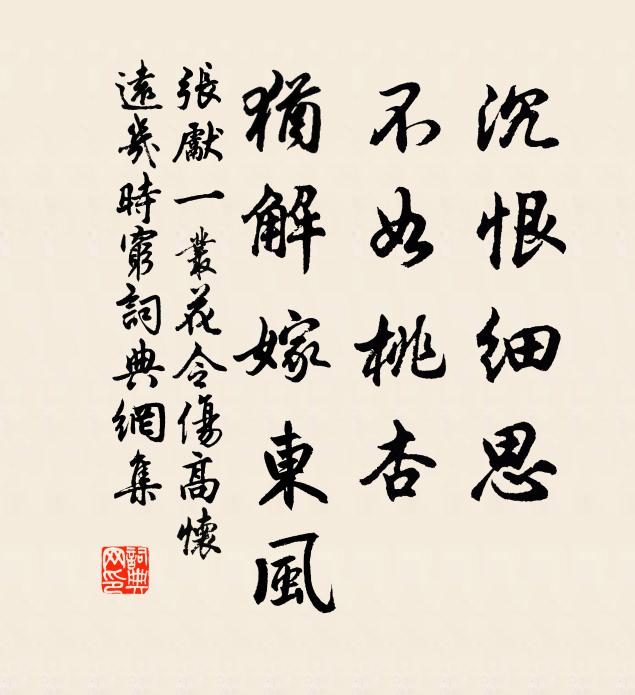 沉恨細思
不如桃杏
猶解嫁東風
張獻一叢花令傷高懷
遠幾時窮詞典網集
詞典
网印